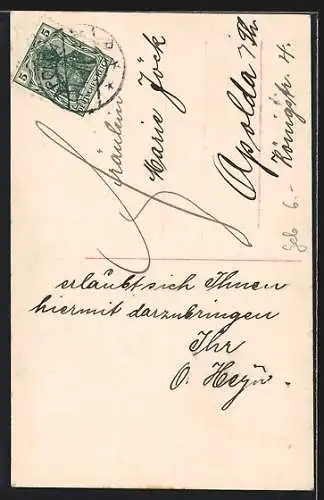 5 5
Fräulein
Marie Jöck
Apolda i/Th.
Königstr. 4.
Geb 6.-
erlaubt sich Ihnen
hiermit darzubringen
Ihr
O. Heyn.